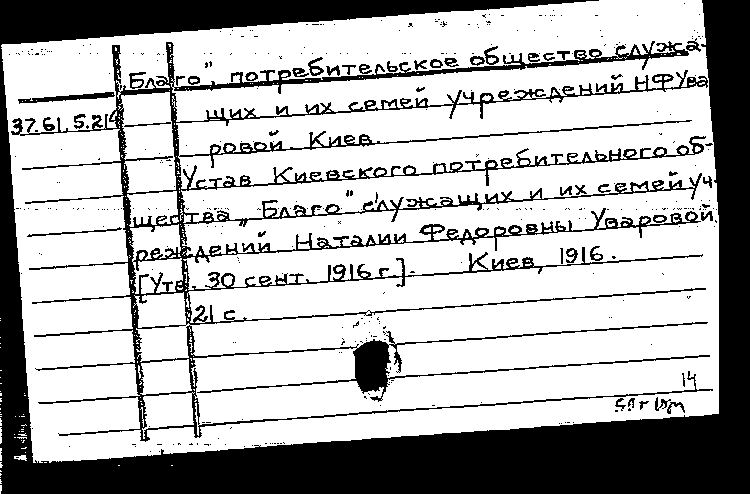 „Благо", потребительское общество служа-
37.61.5.214 щих и их семей учреждений Н Ф Ува
ровой Киев.
Устав Киевского потребительного об-
щества „Благо" служащих и их семей уч-
реждений Наталии Федоровны Уваровой.
[Утв. 30 сент. 1916 г.]. Киев, 1916.
21 с.
14